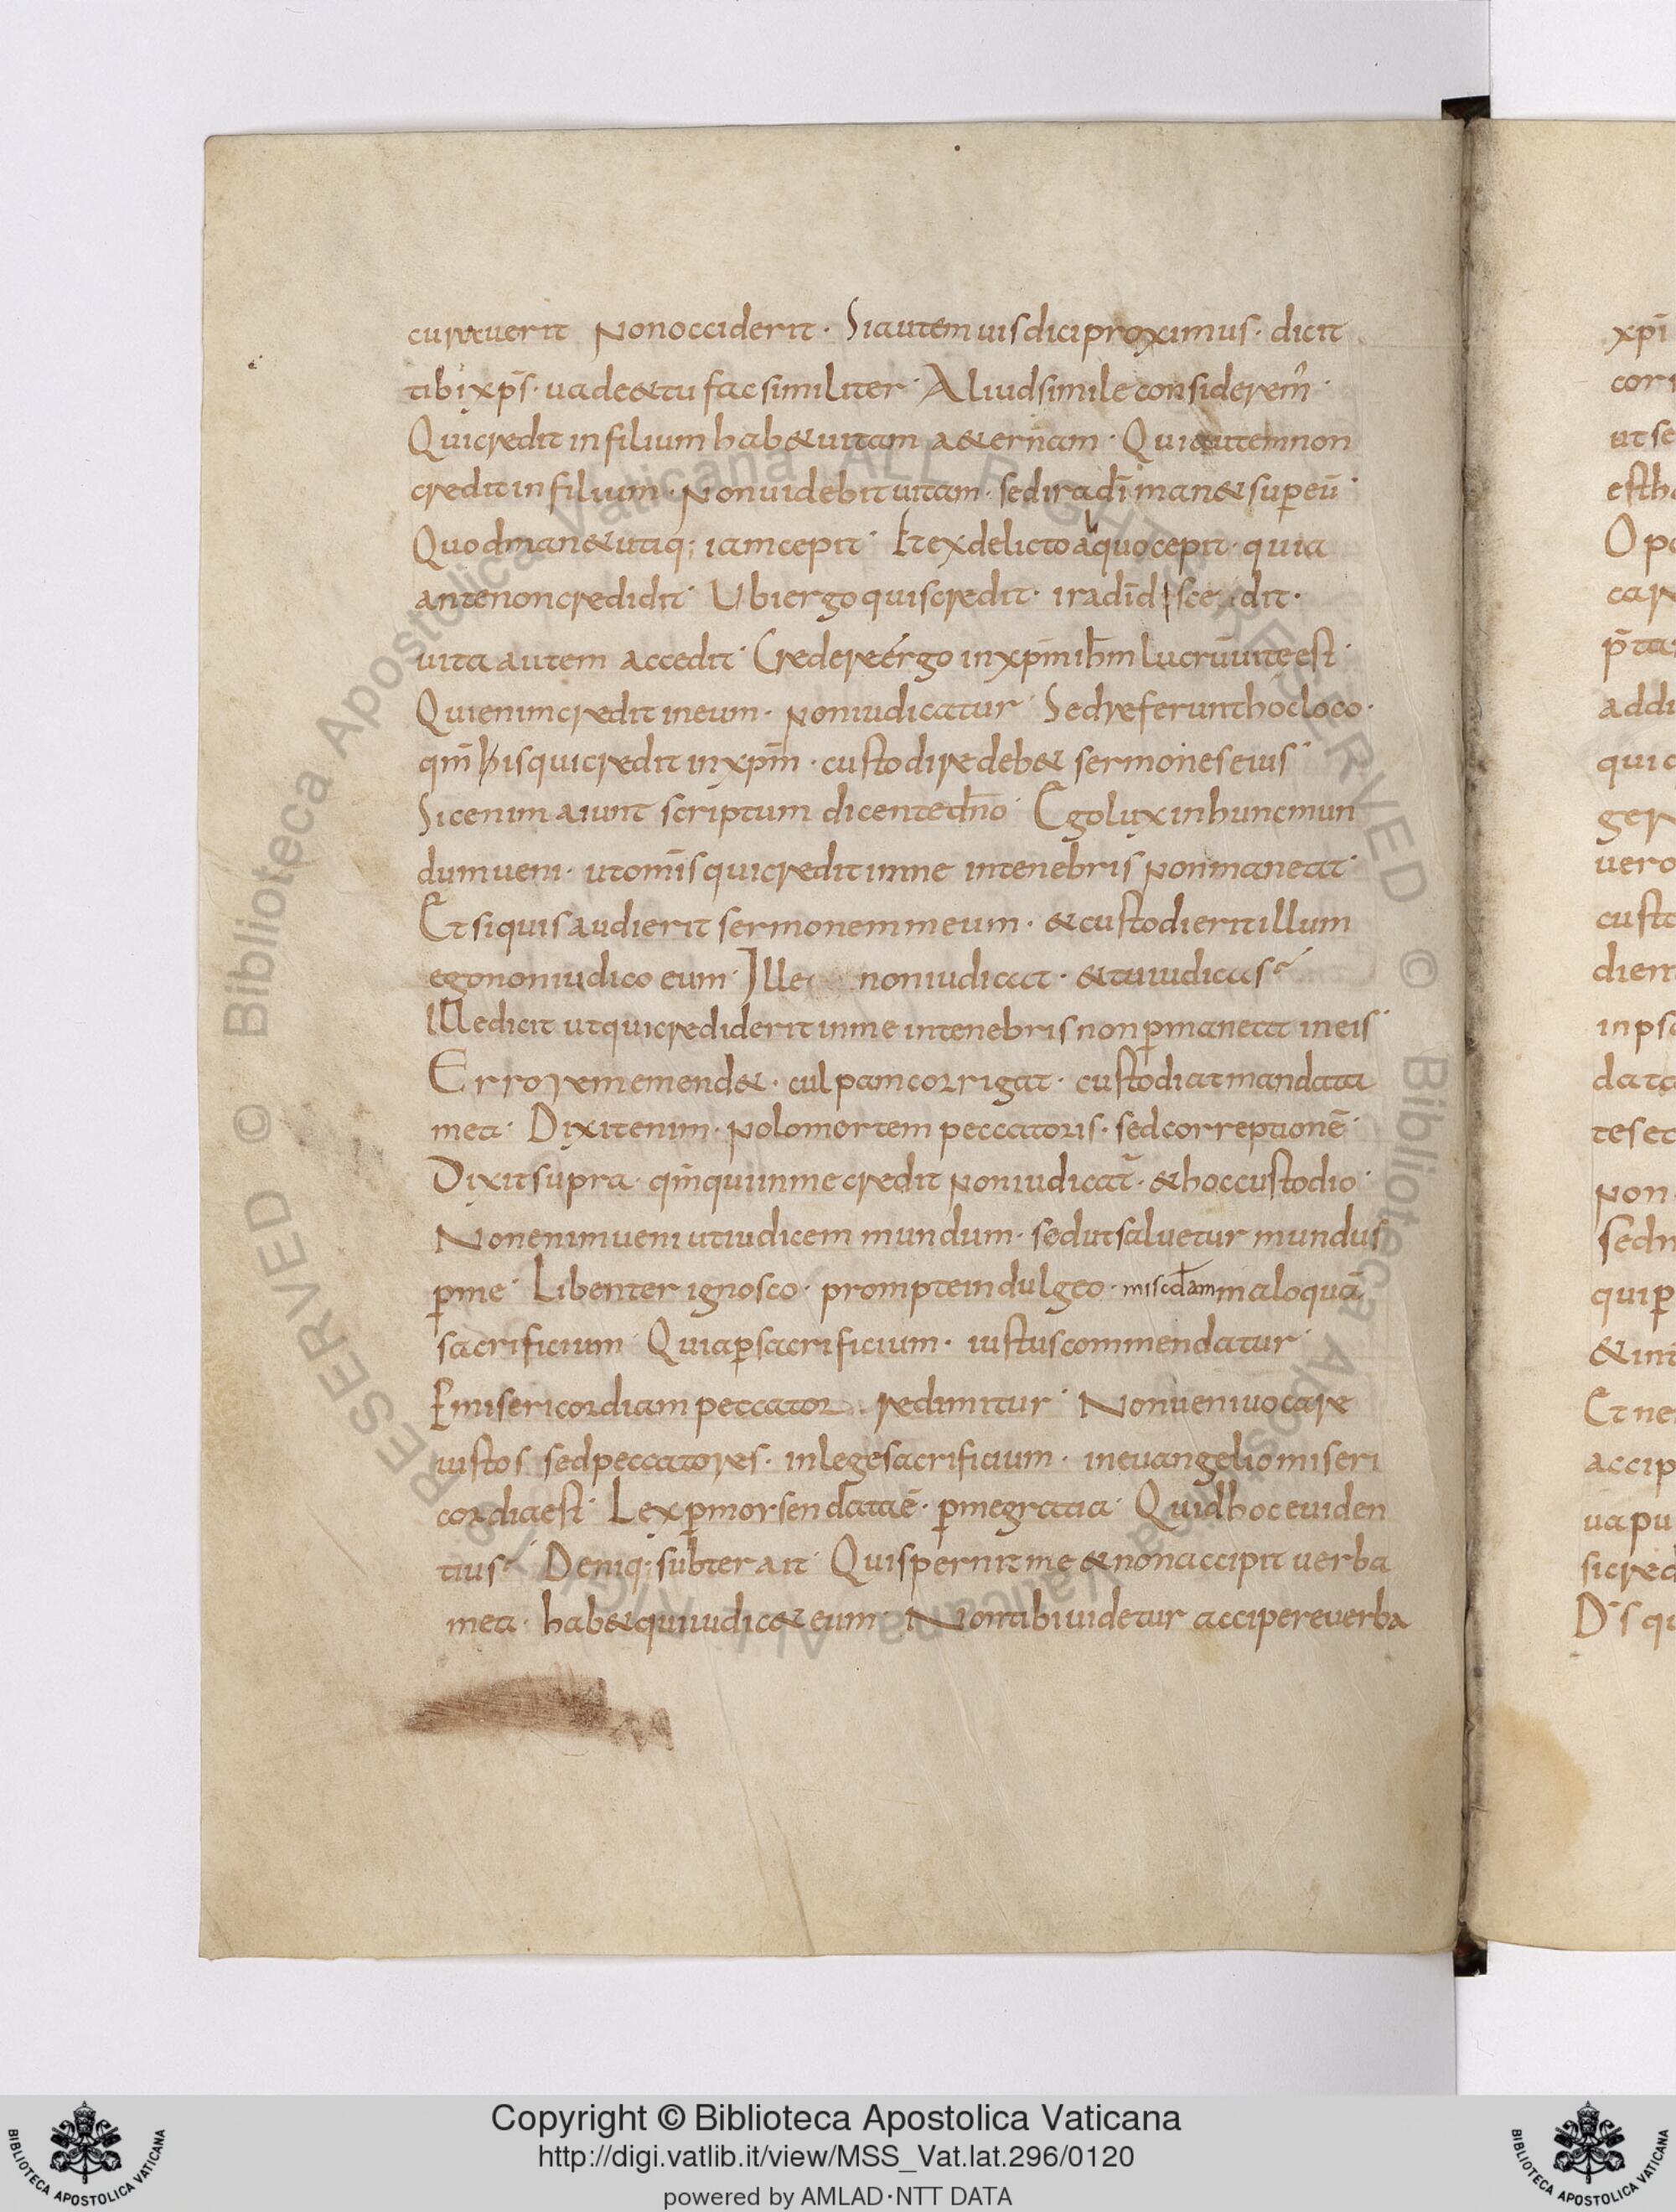 curauerit Non occiderit · Si autem uis dici proximus · dicit
tibi xp̄s · uade & tu fac similiter · Aliud simile considerem᾽ ·
Qui credit in filium hab& uitam a&ernam · Qui autem non
credit in filium · Non uidebit uitam · sed ira dī man& sup eū ·
Quod man& utiq; iam cepit · Et ex delicto a quo cepit · quia
ante non credidit · Ubi ergo quis credit · ira dī discedit ·
uita autem accedit · Credere ergo in xp̄m ih̄m lucrū uitę est ·
Qui enim credit in eum · Non iudicatur · Sed referunt hoc loco ·
qm̄ his qui credit in xp̄m · custodire deb& sermones eius ·
Sic enim aiunt scriptum dicente dn̄o · Ego lux in hunc mun
dum ueni · ut om̄is qui credit in me in tenebris Non maneat ·
Et si quis audierit sermonem meum · & custodierit illum
ego non iudico eum · Ille non iudicat · & tu iudicas
Ille dicit ut qui crediderit in me in tenebris non p̄maneat in eis ·
Errorem emend& · culpam corrigat · custodiat mandata
mea · Dixit enim · Nolo mortem peccatoris · sed correptionē ·
Dixit supra · qm̄ qui in me credit Non iudicat̄ · & hoc custodio ·
Non enim ueni ut iudicem mundum · sed ut saluetur mundus
p̄ me · Libenter ignosco · prompte indulgeo · miscd̄am malo quā
sacrificium · Quia p̄ sacrificium · iustus commendatur ·
P̄ misericordiam peccator redimitur · Non ueni uocare
iustos sed peccatores · in lege sacrificium · in euangelio miseri
cordia est · Lex p̄ morsen data ē · p̄ me gratia · Quid hoc euiden
tius Deniq; subter ait · Qui spernit me & non accipit uerba
mea · hab& qui iudic& eum · Non tibi uidetur accipere uerba
xpī
cor
ut se
esth
O po
car
p̄ta
addi
qui c
ger
uero
custo
dien
in ps
data
tes et
Non
sed n
qui p̄
& in
Et ne
accip
uapu
si cred
D̄s qu
© Biblioteca Apostolica Vaticana ALL RIGHTS RESERVED
© Biblioteca Apostolica Vaticana ALL RIGHTS RESERVED
Copyright © Biblioteca Apostolica Vaticana
http://digi.vatlib.it/view/MSS_Vat.lat.296/0120
powered by AMLAD·NTT DATA
BIBLIOTECA APOSTOLICA VATICANA
BIBLIOTECA APOSTOLICA VATICANA